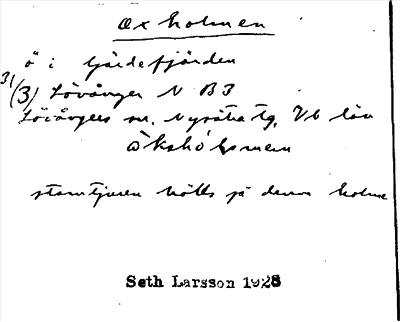 Oxholmen
ö i Gärdefjärden
31
(3) Lövånger N B3
Lövångers sn. Nysätra tg, Vb län
stamtjuren hölls på denna holme
Seth Larsson 1928